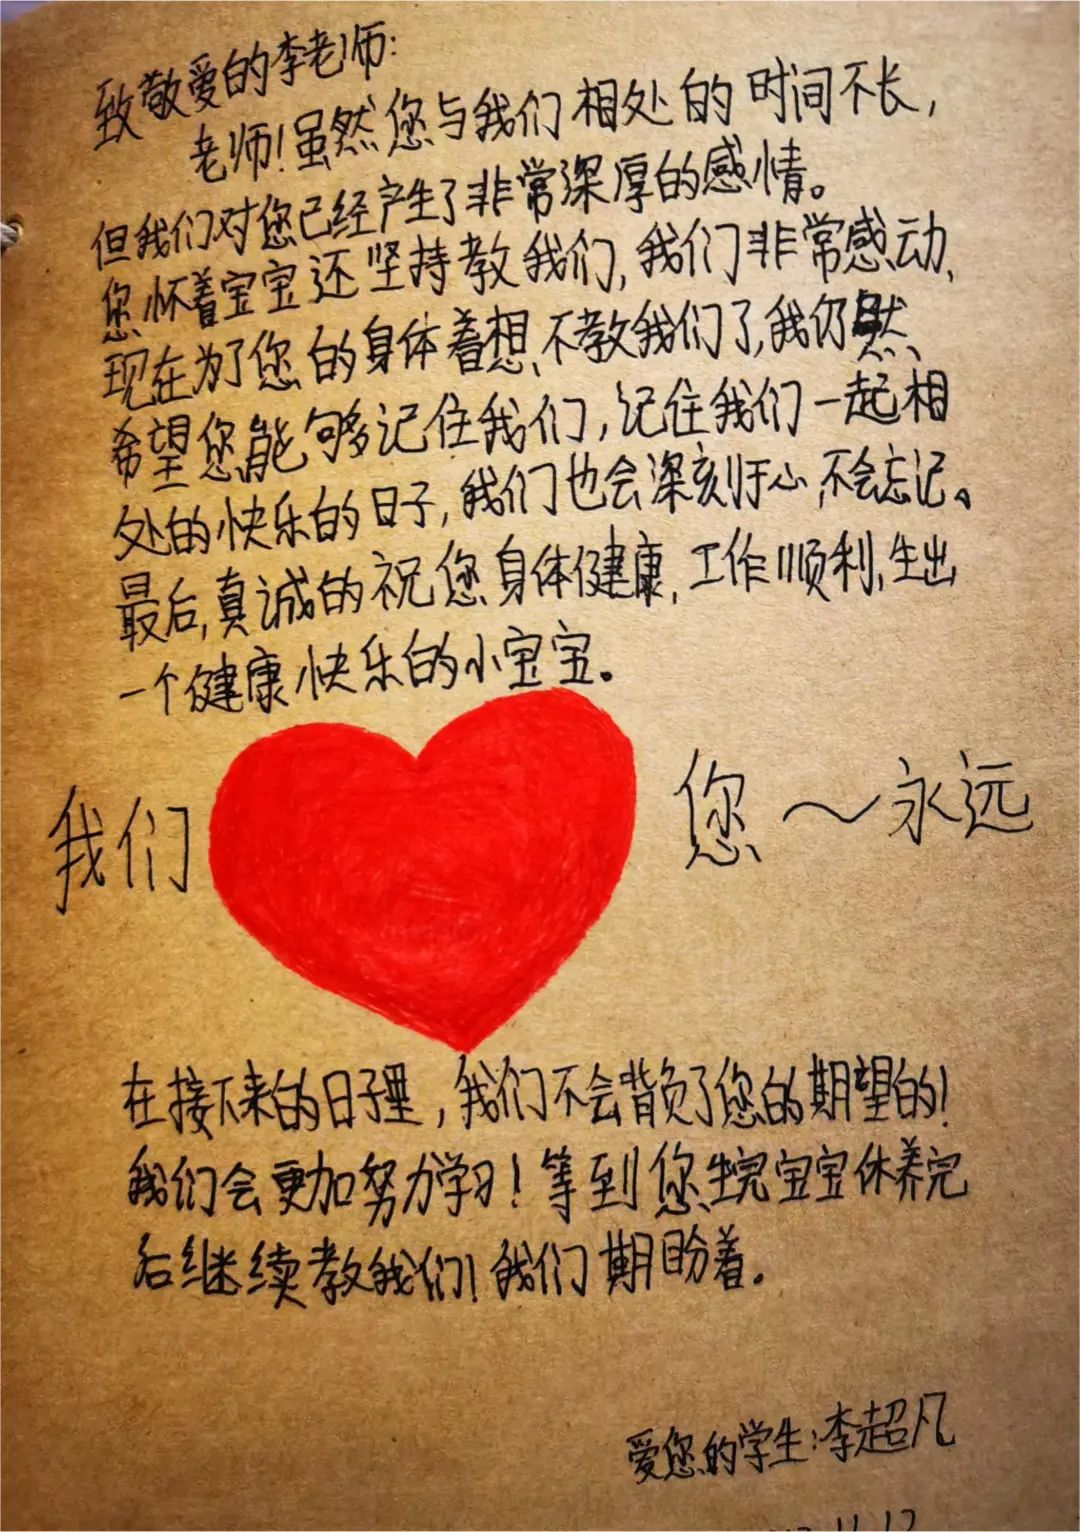 致敬爱的李老师:
老师!虽然您与我们相处的时间不长,
但我们对您已经产生了非常深厚的感情。
您怀着宝宝还坚持教我们,我们非常感动,
现在为了您的身体着想,不教我们了,我仍然
希望您能够记住我们,记住我们一起相
处的快乐的日子,我们也会深刻于心,不会忘记。
最后,真诚的祝您身体健康,工作顺利,生出
一个健康快乐的小宝宝。
我们 您~永远
在接下来的日子里,我们不会背负了您的期望的!
我们会更加努力学习!等到您生完宝宝休养完
后继续教我们!我们期盼着。
爱您的学生:李超凡
11.12